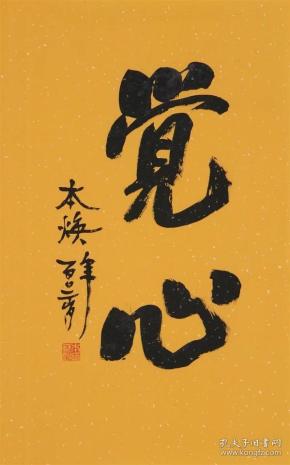 覺心
本焕
年百〇二岁
孔夫子旧书网
www.kongfz.com